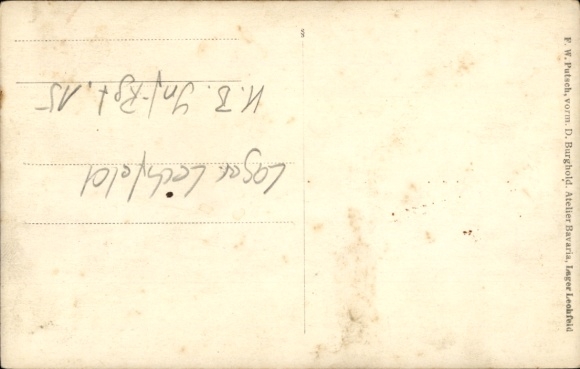 Lager Lechfeld
K. B. Inf-Rgt. 15
F. W. Putsch, vorm. D. Burghold, Atelier Bavaria, Lager Lechfeld